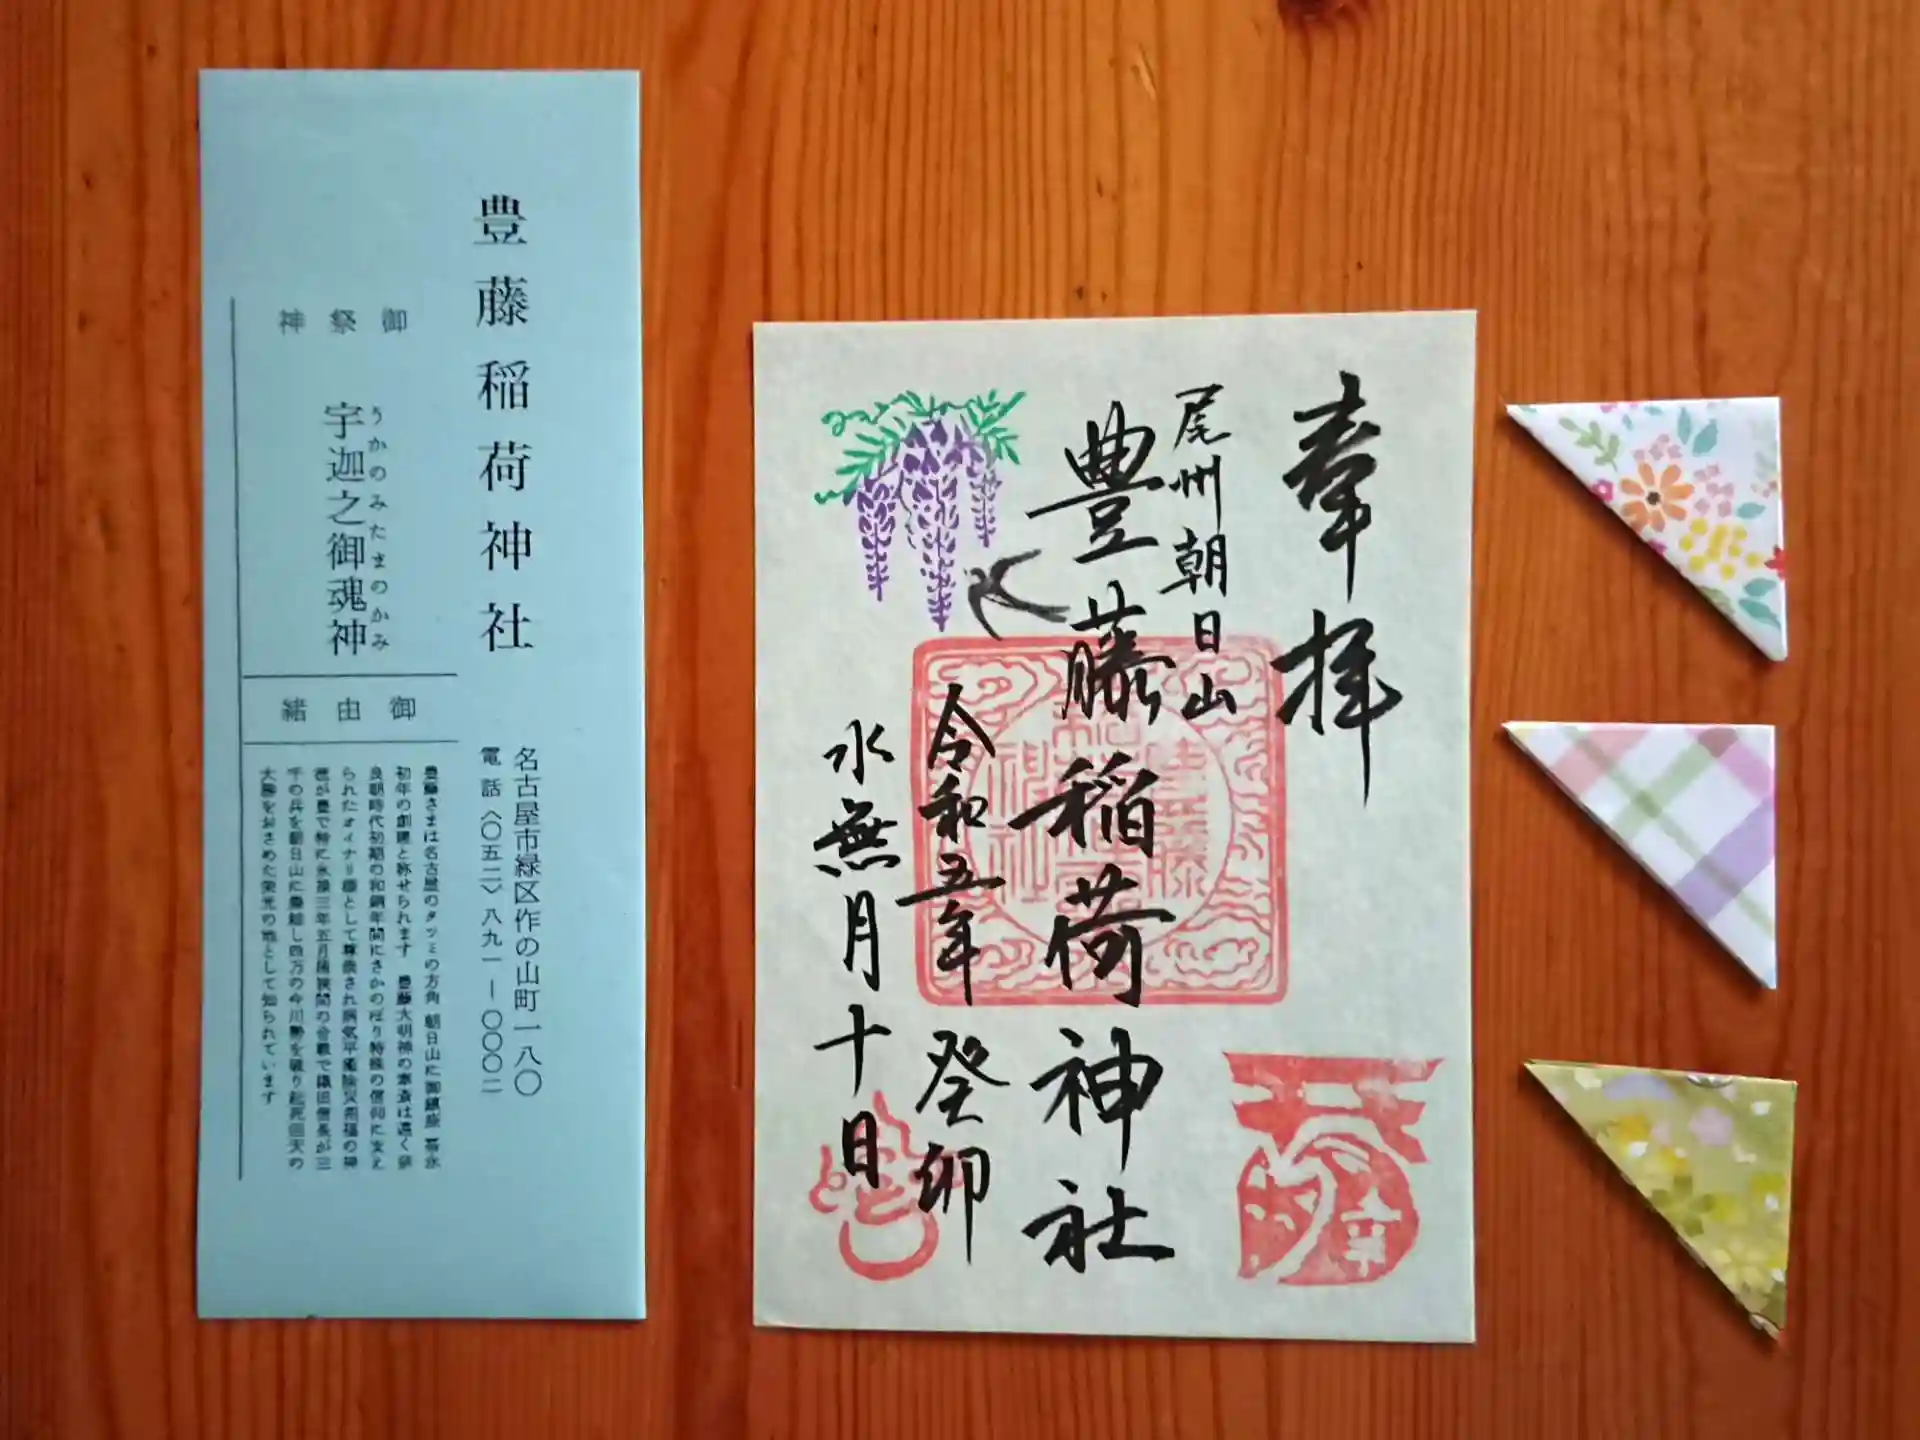 豊藤稲荷神社
名古屋市緑区作の山町一八〇
電話〈〇五二〉八九一ー〇〇〇二
御祭神
うかのみたまのかみ
宇迦之御魂神
御由緒
豊藤さまは名古屋のタツミの方角 朝日山に御鎮座 
初年の創建と称せられます 豊藤大明神の
良朝時代初期の和銅年間にさかのぼり特殊の信仰に支え
られたオイナリ様として尊崇され病気平癒除災招福の神
徳が豊で特に永禄三年五月桶狭間の合戦で織田信長が三
千の兵を朝日山に集結し四万の今川勢を破り起死回天の
大勝をおさめた栄光の地として知られています
奉拝
尾州朝日山
豊藤稲荷神社
令和五年 癸卯
水無月十日